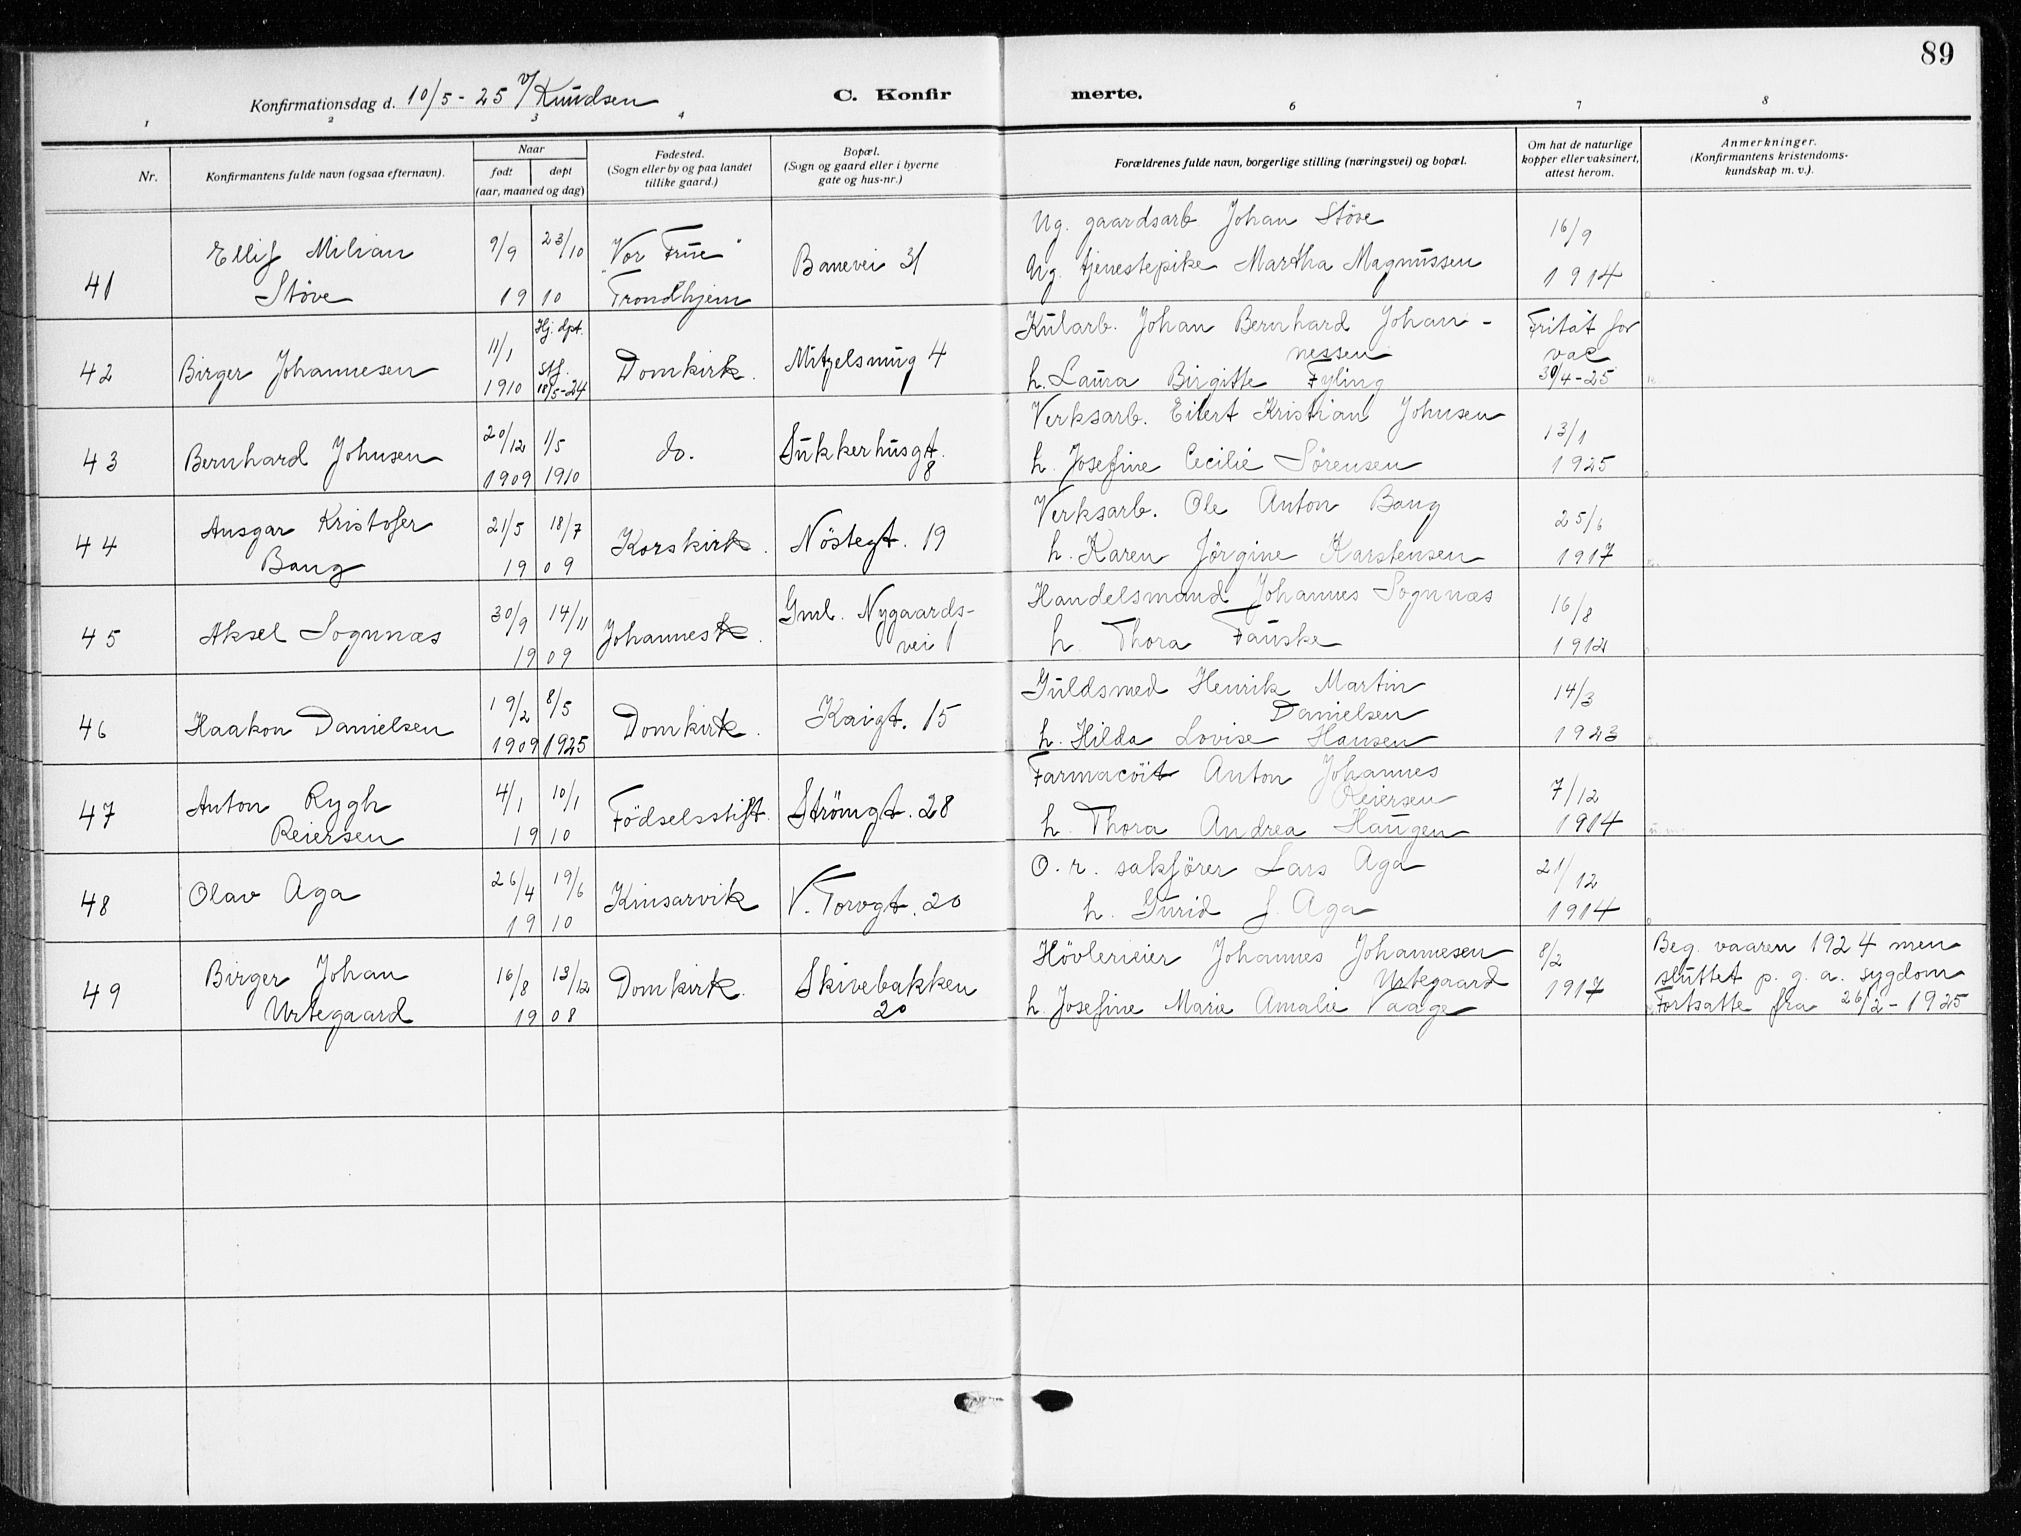 89
Konfirmationsdag d. 10/5 - 25 v/ Knudsen
C. Konfirmerte.
1 2 3 4 6 7 8
Nr.
Konfirmantens fulde navn (ogsaa efternavn).
Naar
født døpt
(aar, maaned og dag)
Fødested.
(Sogn eller by og paa landet
tillike gaard.)
Bopæl.
(Sogn og gaard eller i byerne
gate og hus-nr.)
Forældrenes fulde navn, borgerlige stilling (næringsvei) og bopæl.
Om hat de naturlige
kopper eller vaksinert,
attest herom.
Anmerkninger.
(Konfirmantens kristendoms-
kundskap m. v.).
41
Ellif Milian
Støve
9/9 23/10
19 10
"Vor Frue"
Trondhjem
Banevei 31
Ug. gaardsarb. Johan Støve
Ug. tjenestepike Martha Magnussen
16/9
1914
42
Birger Johannesen
11/1
1910
Hj. dpt.
Stf.
18/5-24
Domkirk.
Mitzelsmug 4
Kularb. Johan Bernhard Johan-
nessen
h. Laura Birgitte Fyling
Fritat for
vac
30/4-25
43
Bernhard Johnsen
20/12 1/5
1909 1910
do.
Sukkerhusgt.
8
Verksarb. Eilert Kristian Johnsen
h. Josefine Cecilie Sörensen
13/1
1925
44
Ansgar Kristofer
Bang
21/5 18/7
19 09
Korskirk.
Nöstegt. 19
Verksarb. Ole Anton Bang
h. Karen Jörgine Karstensen
25/6
1917
45
Aksel Sognnæs
30/9 14/11
19 09
Johannesk.
Gml. Nygaards-
vei 1
Handelsmand Johannes Sognnæs
h. Thora Fauske
16/8
1912
46
Haakon Danielsen
19/2 8/5
1909 1925
Domkirk.
Kaigt. 15
Guldsmed Henrik Martin
Danielsen
h. Hilda Lovise Hansen
14/3
1923
47
Anton Rygh
Reiersen
4/1 10/1
19 10
Födselsstift.
Strömgt. 28
Farmacöit Anton Johannes
Reiersen
h. Thora Andrea Haugen
7/12
1914
48
Olav Aga
26/4 19/6
19 10
Kinsarvik
V. Torvgt. 20
O. r. sakförer Lars Aga
h. Gurid J. Aga
21/12
1914
49
Birger Johan
Urtegaard
16/8 13/12
19 08
Domkirk.
Skivebakken
20
Hövlerieier Johannes Johannesen
Urtegaard
h. Josefine Marie Amalie Vaage
8/2
1917
Beg. vaaren 1924 men
sluttet p. g. a. sygdom
Fortsatte fra 26/2-1925